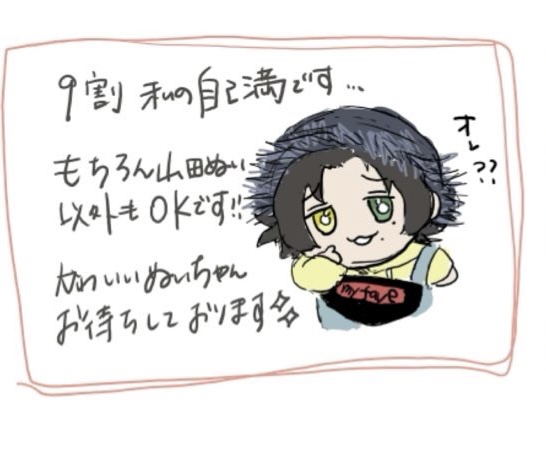 9割 私の自己満です…
もちろん山田ぬい
以外もOKです!!
かわいいぬいちゃん
お待ちしております
オレ??
my fave